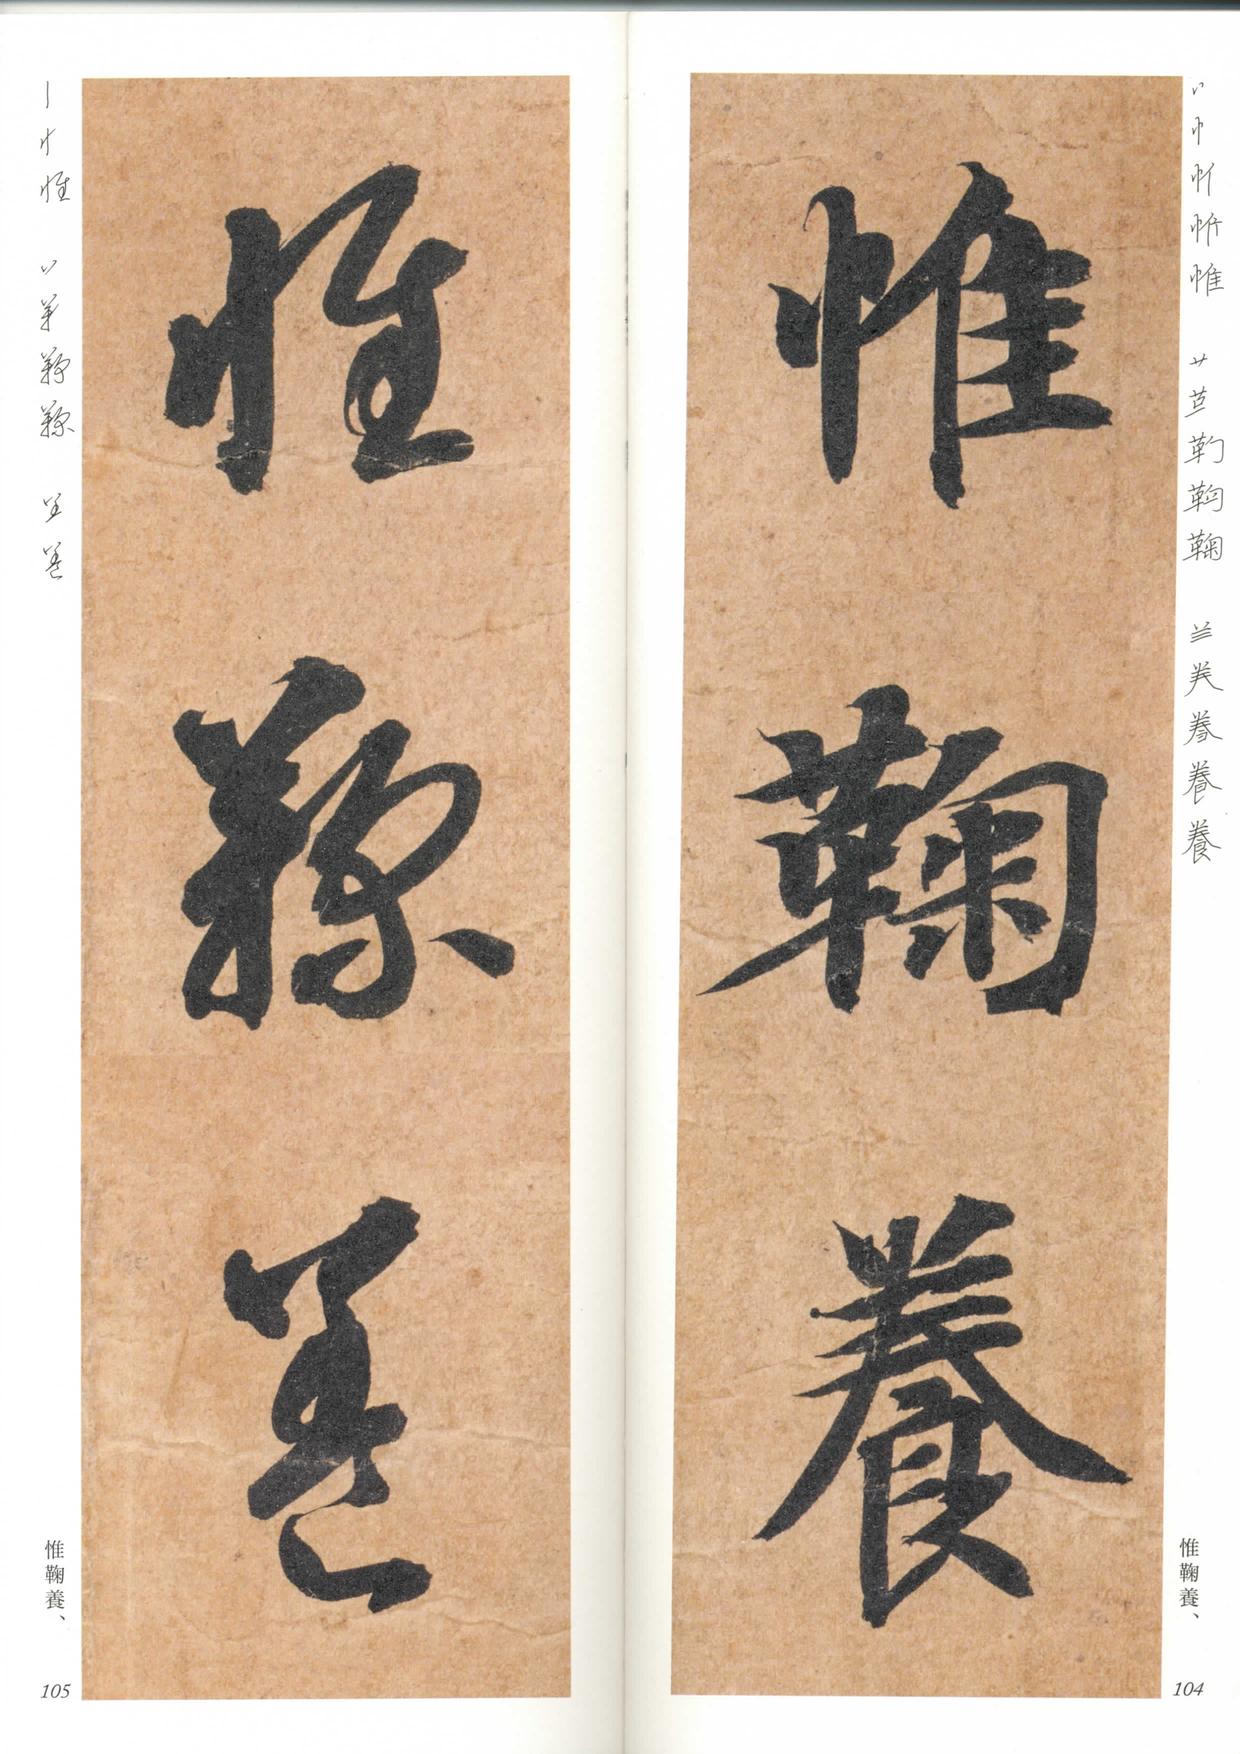 惟鞠養
惟鞠養、
104
惟鞠養
惟鞠養、
105